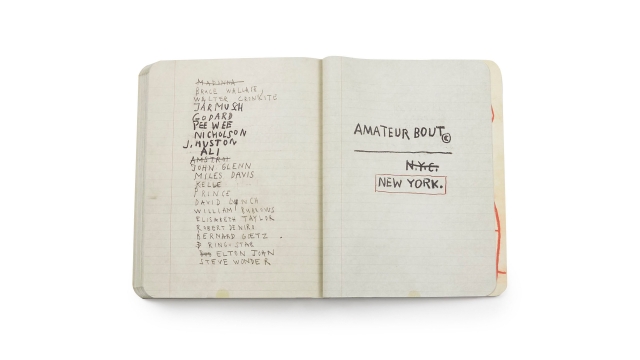 MADONNA
BRUCE WALLACE,
WALTER CRONKITE
JARMUSH
GODARD
PEE WEE
NICHOLSON
J. HUSTON
ALI
AMSTRAI
JOHN GLENN
MILES DAVIS
KELLE
PRINCE
DAVID
WILLIAM BURROWS
ELISABETH TAYLOR
ROBERT DENIRO
BERNARD GOETZ
RINGO STAR
ELTON JOHN
STEVE WONDER
AMATEUR BOUT©
N.Y.C.
NEW YORK.